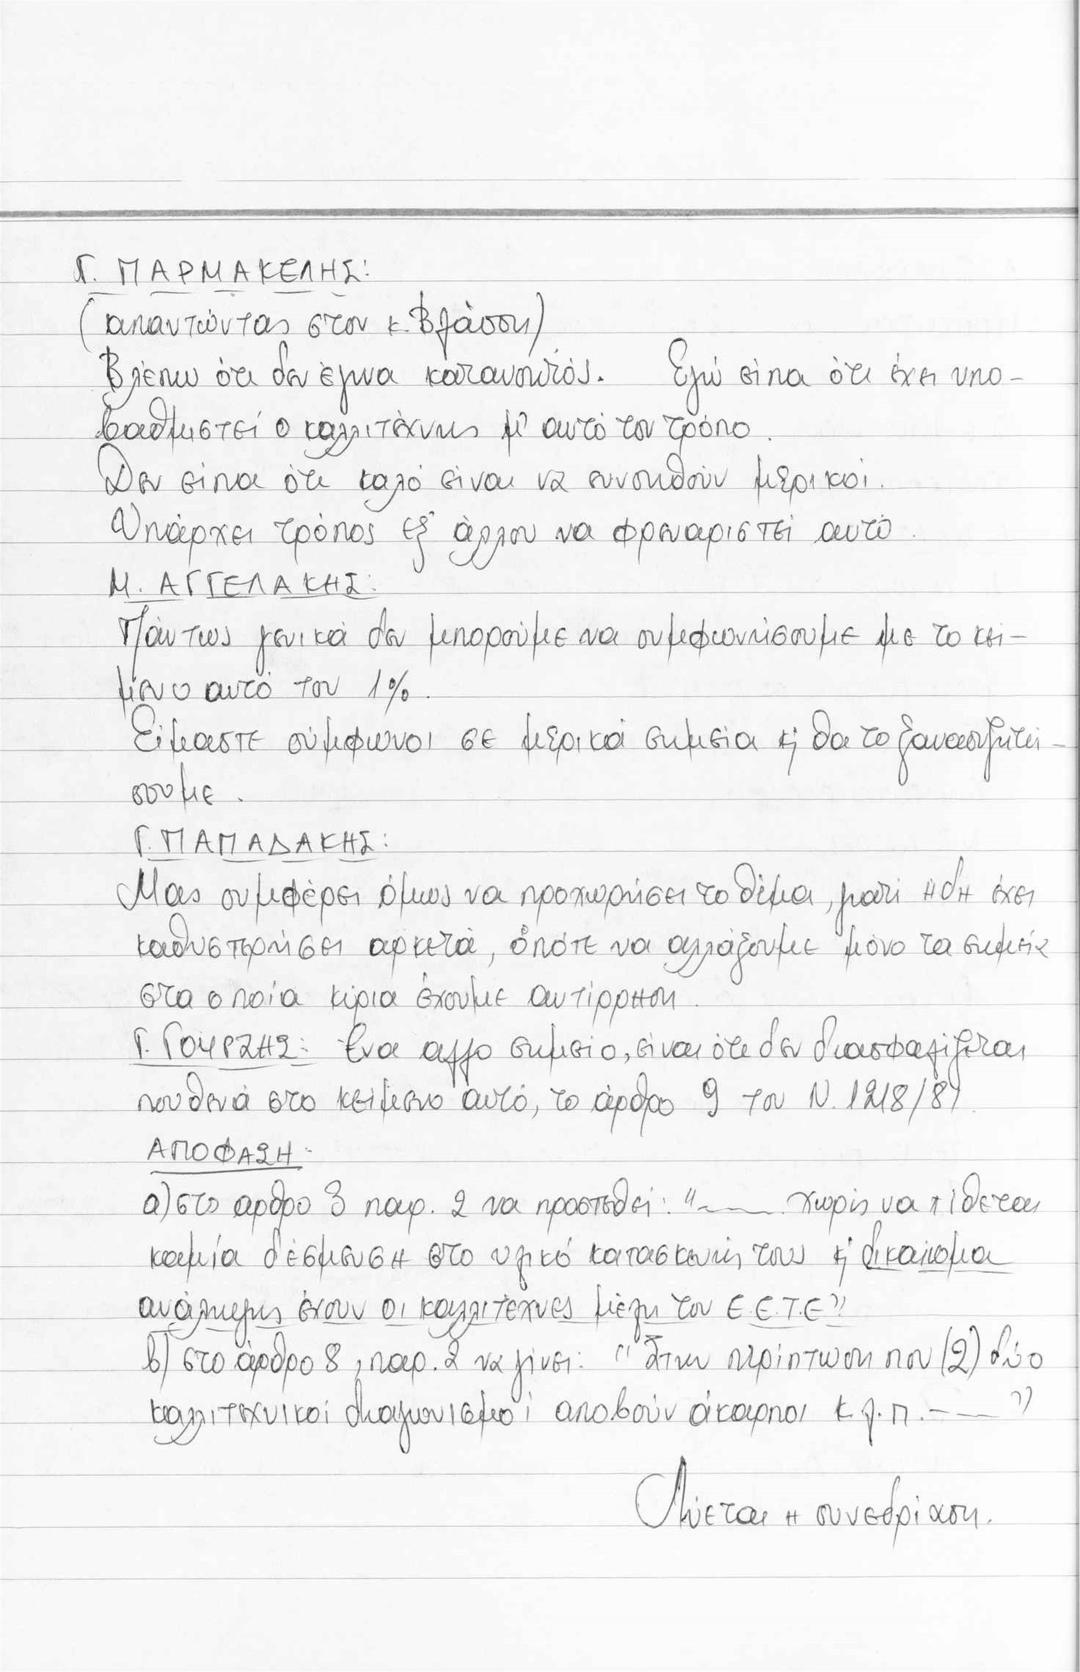 Γ. ΠΑΡΜΑΚΕΛΗΣ:
(απαντώντας στον κ. Βλάσση)
Βλέπω ότι δεν έγινα κατανοητός. Εγώ είπα ότι έχει υπο-
βαθμιστεί ο καλλιτέχνης μ' αυτό τον τρόπο.
Δεν είπα ότι καλό είναι να ευνοηθούν μερικοί.
Υπάρχει τρόπος εξ' άλλου να φρεναριστεί αυτό.
Μ. ΑΓΓΕΛΑΚΗΣ:
Πάντως γενικά δεν μπορούμε να συμφωνήσουμε με το κεί-
μενο αυτό του 1%.
Είμαστε σύμφωνοι σε μερικά σημεία κ' θα το ξανασυζητή-
σουμε.
Γ. ΠΑΠΑΔΑΚΗΣ:
Μας συμφέρει όμως να προχωρήσει το θέμα, γιατί ήδη έχει
καθυστερήσει αρκετά, οπότε να αλλάξουμε μόνο τα σημεία
στα οποία κύρια έχουμε αντίρρηση.
Γ. ΓΟΥΡΖΗΣ: Ένα αλλο σημείο, είναι ότι δεν διασφαλίζεται
πουθενά στο κείμενο αυτό, το άρθρο 9 του Ν. 1218/81
ΑΠΟΦΑΣΗ:
α) στο αρθρο 3 παρ. 2 να προστεθεί: "~___ χωρίς να τίθεται
καμία δέσμευση στο υλικό κατασκευής τους κ' δικαίωμα
ανάληψης έχουν οι καλλιτέχνες μέλη του Ε.Ε.Τ.Ε"
β) στο άρθρο 8, παρ. 2 να γίνει: "Στην περίπτωση που (2) δύο
καλλιτεχνικοί διαγωνισμοί αποβούν άκαρποι κ.λ.π. -—— "
Λύεται η συνεδρίαση.